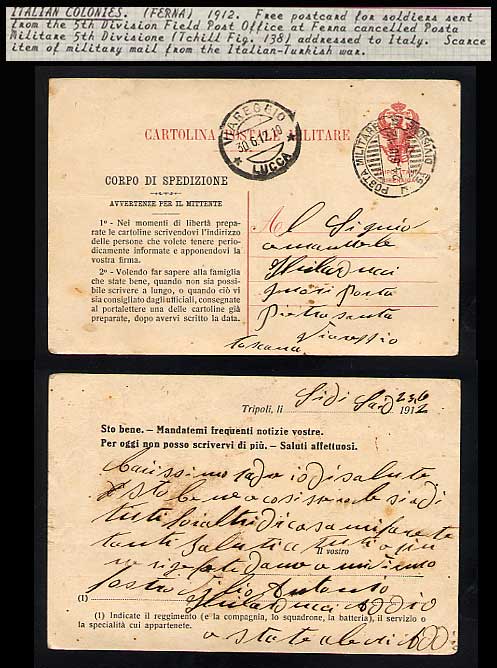 ITALIAN COLONIES. (FERNA) 1912. Free postcard for soldiers sent
from the 5th Division Field Post Office at Ferna cancelled Posta
Militare 5th Divisione (Tchill Fig. 138) addressed to Italy. Scarce
item of military mail from the Italian-Turkish war.
VIAREGGIO
30.6.12.10
* LUCCA *
CARTOLINA POSTALE MILITARE
POSTA MILITARE
CORPO DI SPEDIZIONE
AVVERTENZE PER IL MITTENTE
1° - Nei momenti di libertà prepa-
rate le cartoline scrivendovi l'indirizzo
delle persone che volete tenere perio-
dicamente informate e apponendovi la
vostra firma.
2° - Volendo far sapere alla famiglia
che state bene, quando non sia possi-
bile scrivere a lungo, o quando ciò vi
sia consigliato dagli ufficiali, consegnate
al portalettere una delle cartoline già
preparate, dopo avervi scritto la data.
Al Signio
Ghilarducci
fuori Porta
Pietrasanta
Viareggio
Toscana
Tripoli, li Sidi Said 23 6 1912
Sto bene. — Mandatemi frequenti notizie vostre.
Per oggi non posso scrivervi di più. — Saluti affettuosi.
Carissimo
sto bene e cosi
tutti voi altri di casa
tanti saluti
Il vostro
Antonio
(1) Ghilarducci Addio
(1) Indicate il reggimento (e la compagnia, lo squadrone, la batteria), il servizio o
la specialità cui appartenete.